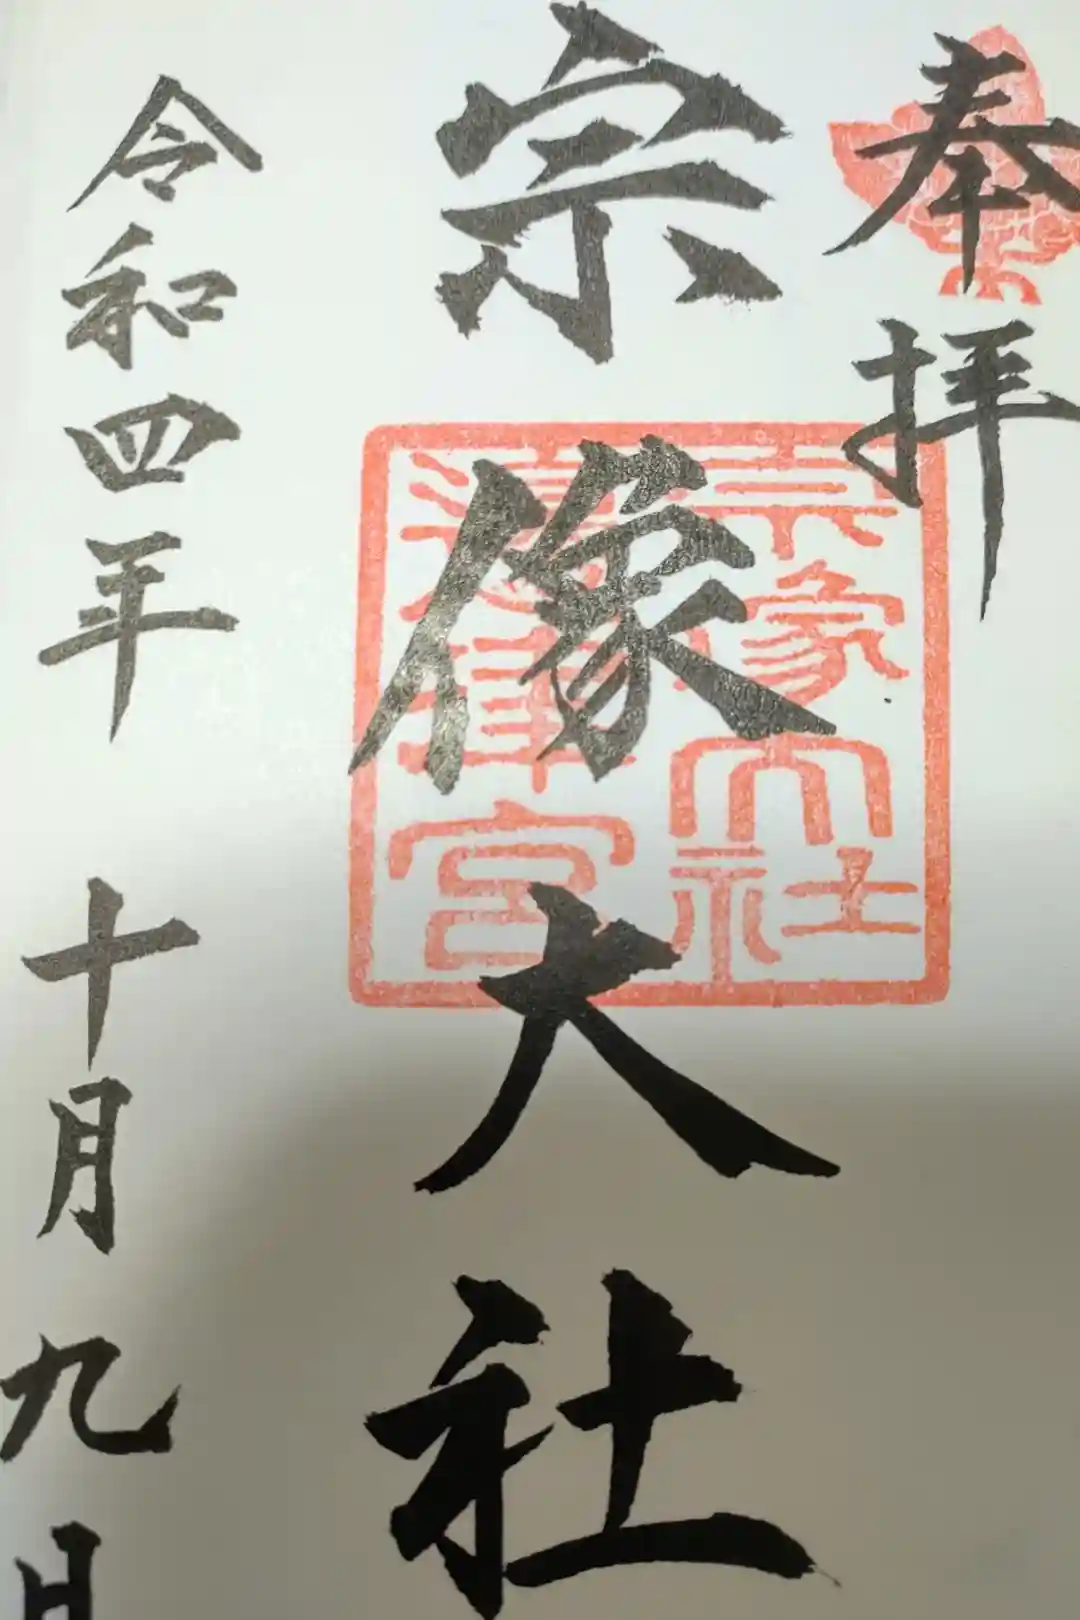 奉拝
宗像大社
宗像大社
津宮
令和四年十月九日